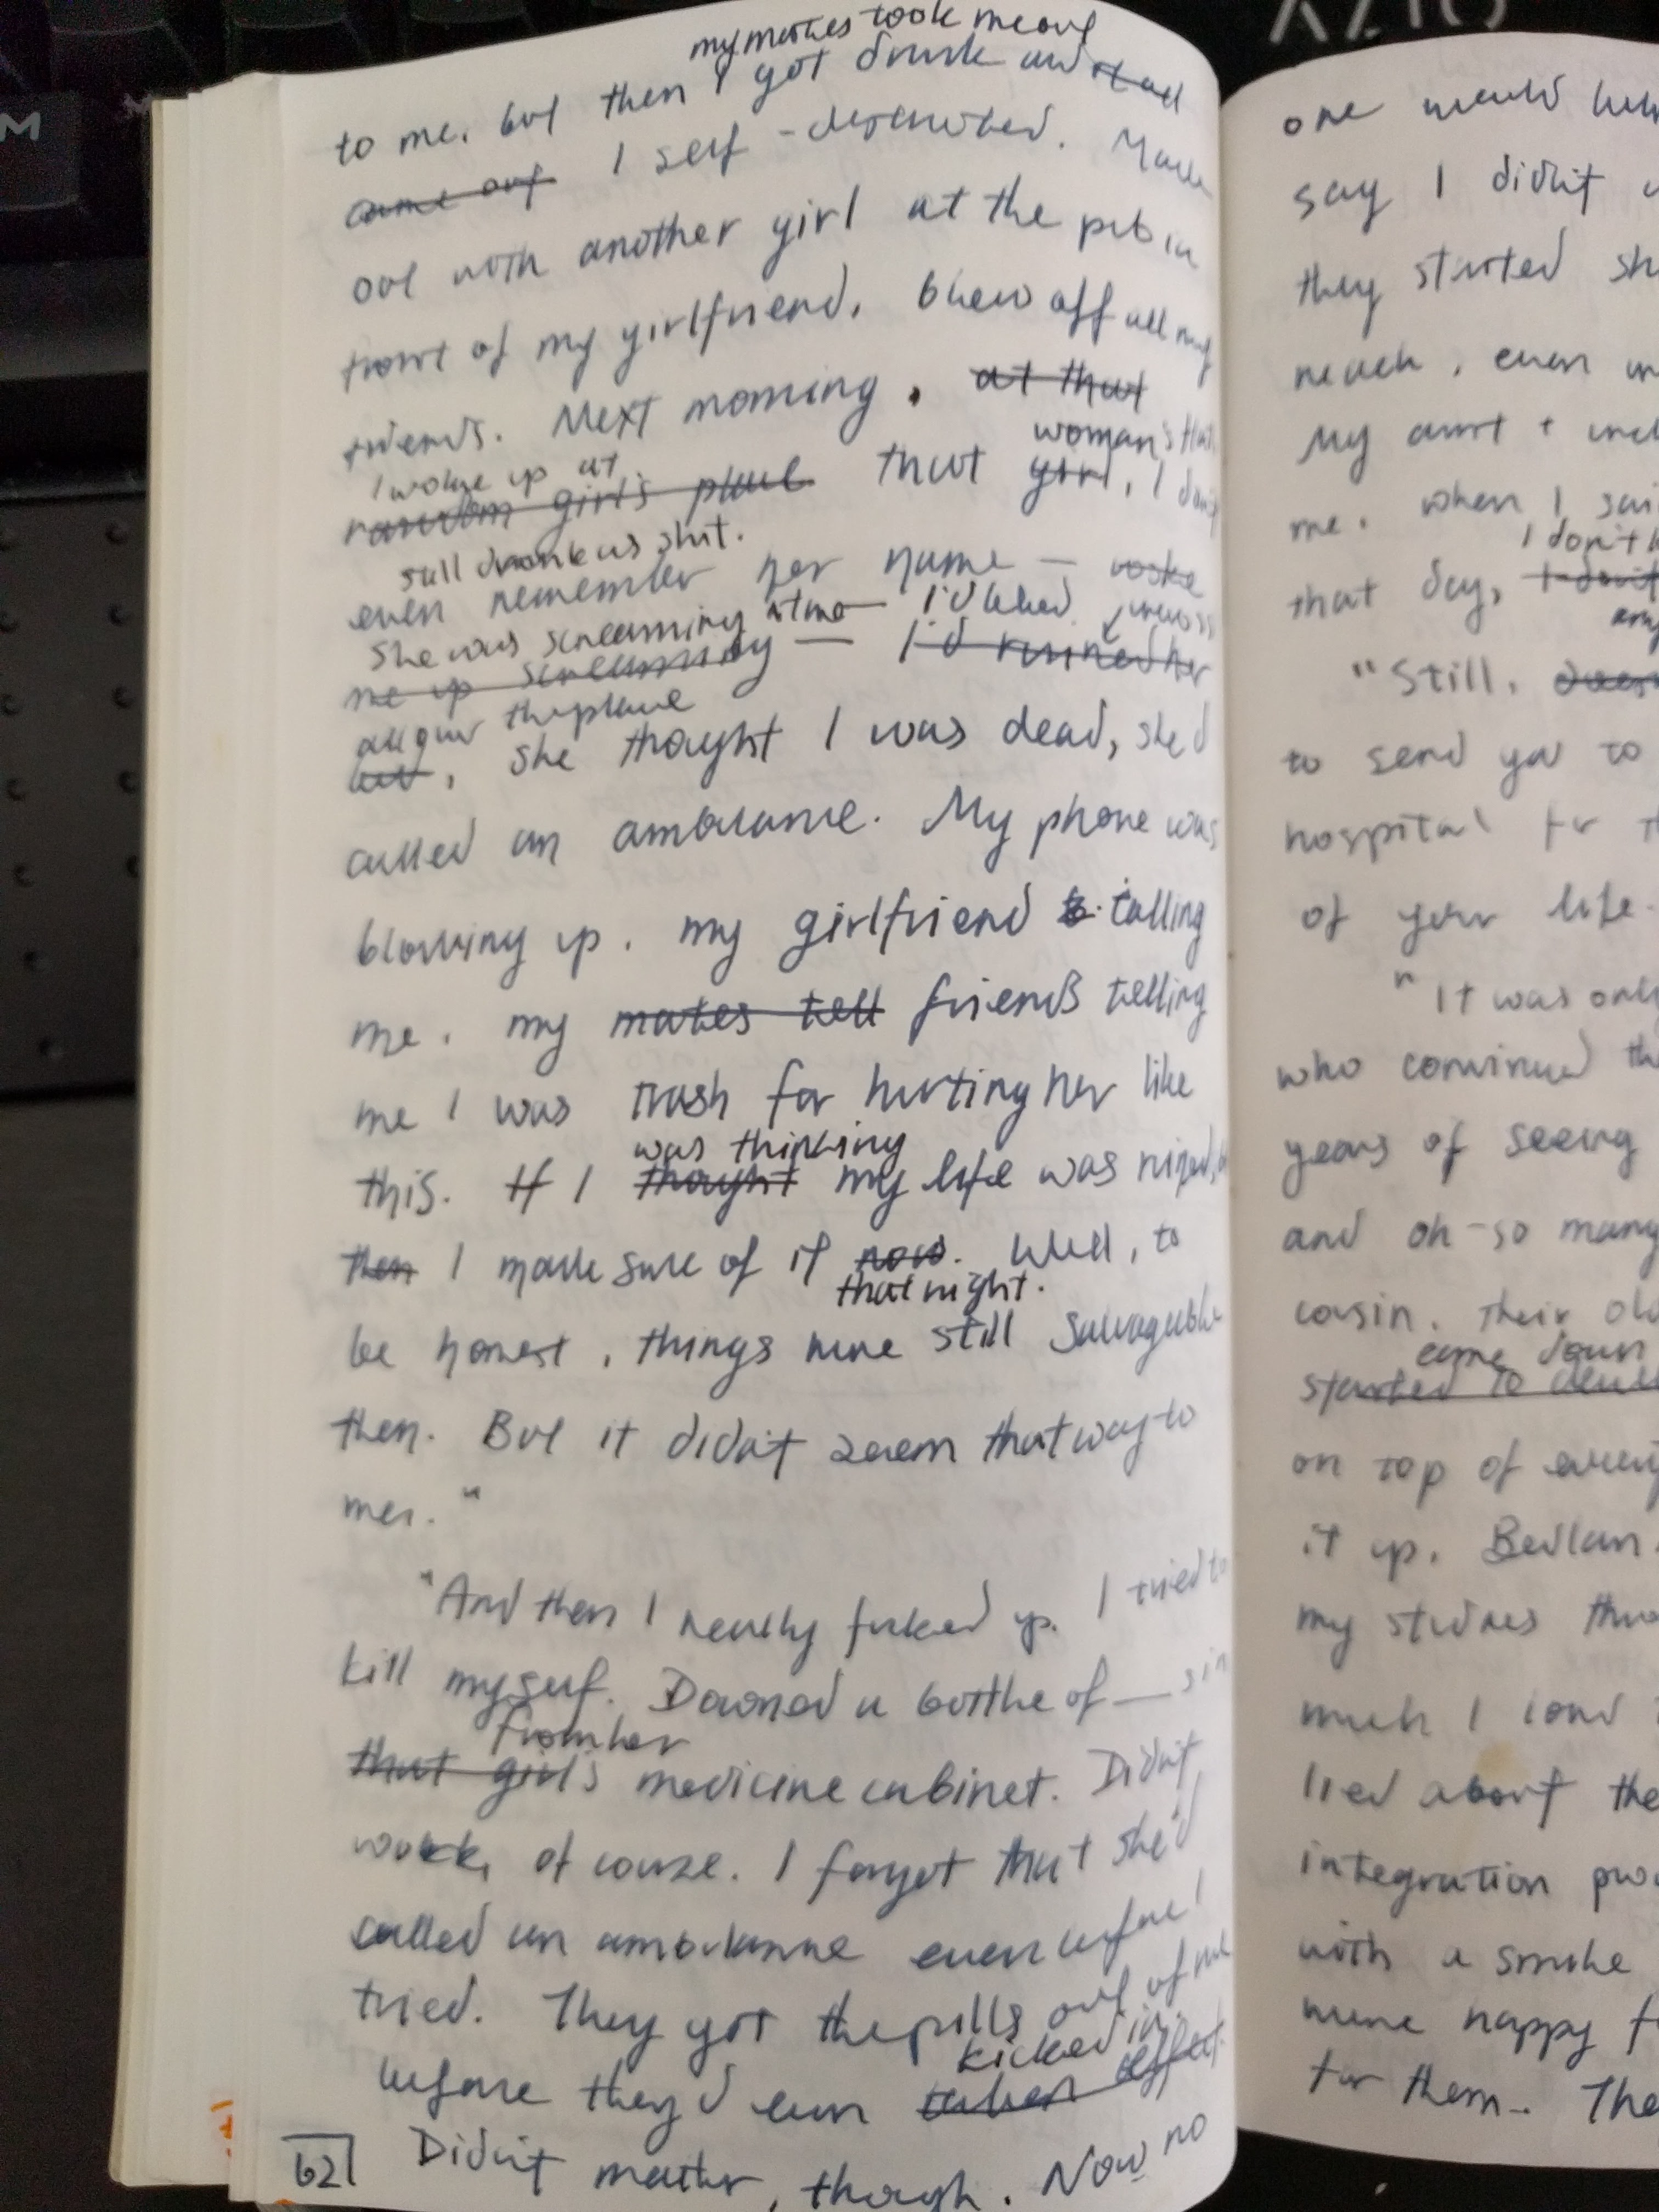 my mates took me out
to me. but then I got drunk and
came out I self-destructed. Made
out with another girl at the pub in
front of my girlfriend. Blew off all my
friends. Next morning, at that
woman's
I woke up at
random girl's place that girl, I don't
still drunk as shit.
even remember her name — woke
She was screaming at me — I'd
me up screaming — I'd ruined her
all over the place
bed, she thought I was dead, she'd
called an ambulance. My phone was
blowing up. my girlfriend calling
me. my mates tell friends telling
me I was trash for hurting her like
was thinking
this. If I thought my life was ruined,
then I made sure of it now. Well, to
that night.
be honest, things were still salvageable
then. But it didn't seem that way to
me."
"And then I really fucked up. I tried to
kill myself. Downed a bottle of —
from her
that girl's medicine cabinet. Didn't
work, of course. I forgot that she'd
called an ambulance even before I
tried. They got the pills out of me
kicked in.
before they'd even taken effect.
62 Didn't matter, though. Now no
one would
say I didn't
they started
me. when I
I don't
that day, I don't
"Still,
to send you to
hospital for
of your life.
"It was only
who convinced
years of seeing
and oh-so many
cousin. Their
came down
started to
on top of every
it up. Bedlam.
my
much I
lied about the
integration
with a smile
were happy
for them. The